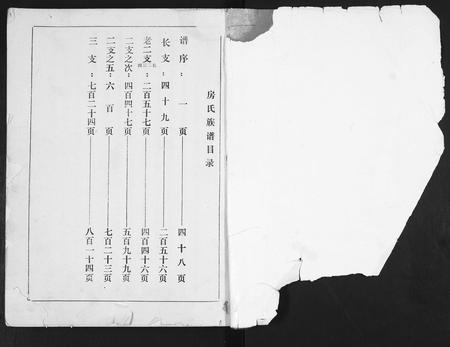 房氏族谱目录
谱序：一页——四十八页
长支：四十九页——二百五十六页
老二支：二百五十七页——四百四十六页
二支之次：四百四十七页——五百九十九页
二支之五：六百页——七百二十三页
三支：七百二十四页——八百一十四页